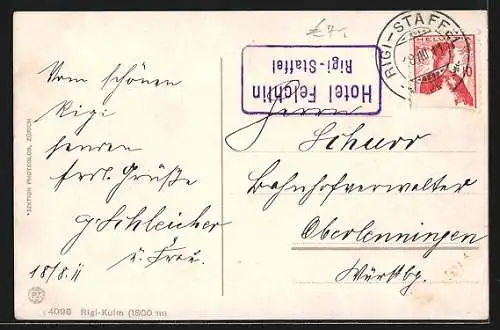 £ 7.-
RIGI-STAFFEL
HELVETIA
10
Hotel Felchlin
Rigi-Staffel
Vom schönen
Rigi
senden
frdl. Grüße
G. Schleicher
u. Frau.
18/8.11
Herrn
Schurr
Bahnhofverwalter
Oberlenningen
Württbg.
EDITION PHOTOGLOB, ZÜRICH
4098 Rigi-Kulm (1800 m)